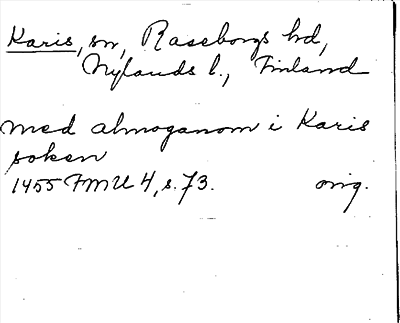 Karis, sn, Raseborgs hd,
Nylands l., Finland
med almoganom i Karis
soken
1455 FMU 4, s. 73. orig.